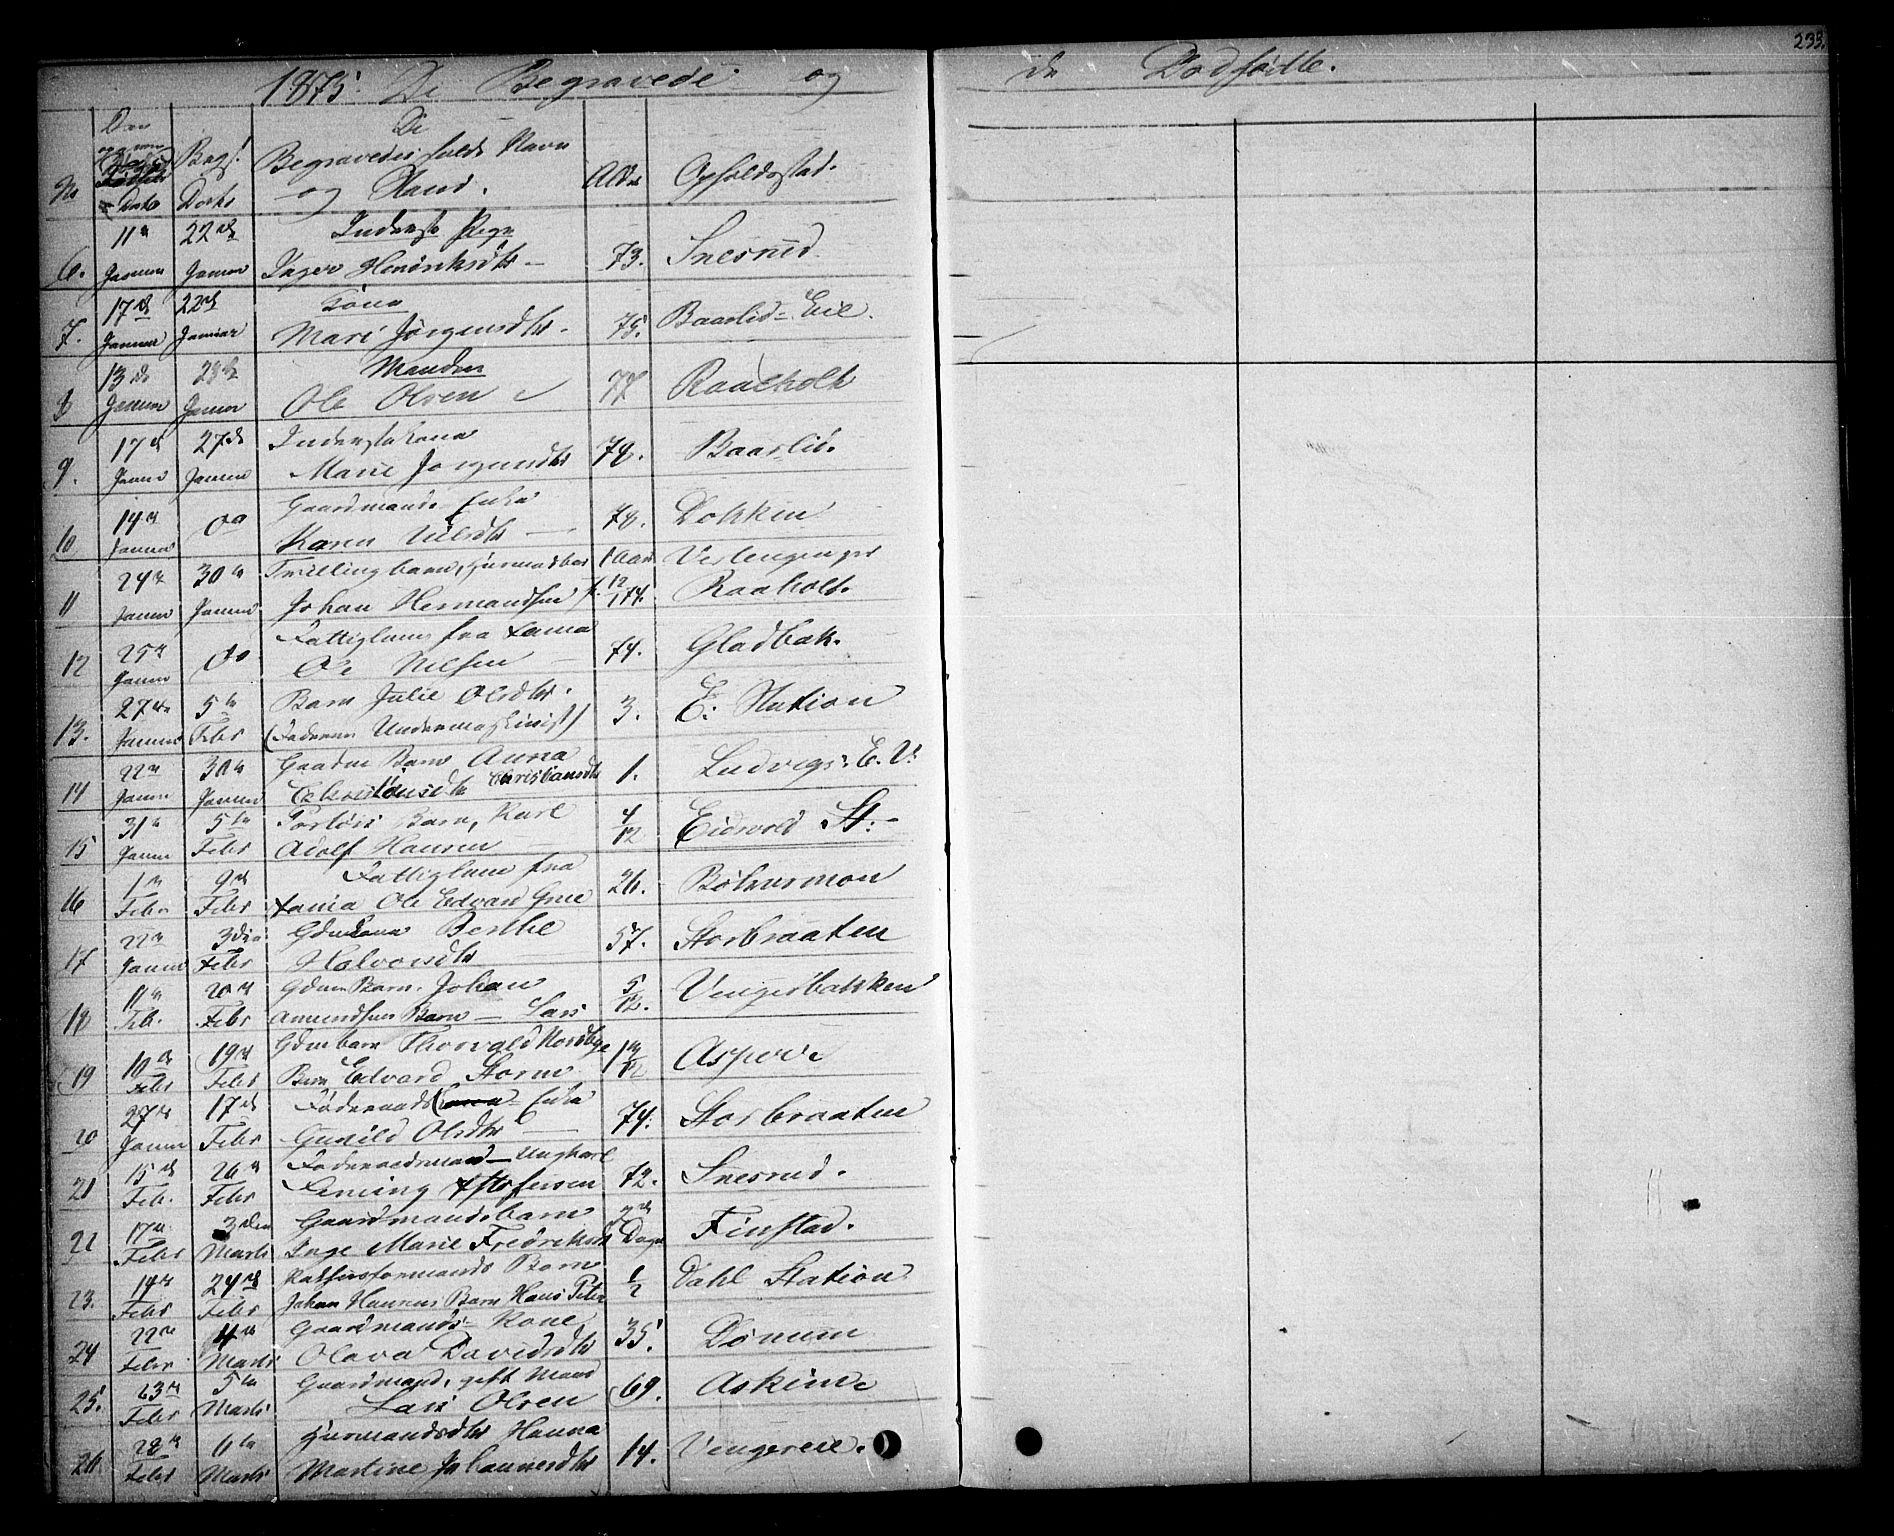 233.
1875. De Begravede og de Dødfødte.
No Døds Dato Begr. Dato De Begravedes fulde Navn og Stand. Alder Opholdssted.
6. 11te Januar 22de Januar Inderst Pige
Inger Henriksdtr 73. Snesrud.
7. 17de Januar 22de Januar Kone
Mari Jörgensdtr. 75. Baarlid-Eie.
8 13de Januar Januar Manden
Ole Olsen 77 Raaholt
9. 17de Januar 27de Januar Inderstkone
Marie Jorgensdtr 78. Baarlid.
10 14de Januar do Gaardmands Enke
Karen Nilsdtr 78. Dokken
11 24de Januar 30te Januar Tvillingbarn, Husmandbar
Johan Hermandsen 1 Aar Raaholt.
12 25de Januar do Fattiglem fra
Ole Nilsen 74. Gladbak.
13. 27de Januar 5te Febr Barn Julie Olsdtr.
(Faderen Undermaskinist) 3. E. Station
14 22de Januar 30te Januar Barn Anna
Christiansdtr 1. Ludvigs. E. V.
15 31te Januar 5te Febr Barn, Karl
Adolf Hansen 4/12 Eidsvold St.
16 1te Febr 9de Febr Fattiglem fra
Ole Edvard 26.
17 22de Januar 3die Febr Gdmkone Berthe
Halvorsdtr 57. Storbraaten
18 11te Feb. 20de Febr Gdms Barn. Johan
Amundsens Barn Lars 5/12. Vengerbakken
19 10de Febr 19de Febr Gdmbarn Thorvald Nordbye
Barn Edvard Storm
20 27de Januar 17de Febr Föderaads Enke
Gunild Olsdtr 74. Storbraaten
21 15de Feb. 26de Febr Föderaadsmand Ungkarl
72. Snesrud.
22 17de Febr 3den Marts Gaardmandsbarn
Inge Marie Fredriksd Dage Finstad.
23. 14de Febr 24de Febr Barn
Johan Hansens Barn Hans Peter 1/2 Dahl Station
24 22de Febr 4de Marts Gaardmands Kone
Olava Davidsdtr 35. Dönum
25. 23de Febr 5te Marts Gaardmand, gift Mand
Lars Olsen 69. Askim
26. 28de Febr 6te Marts Husmandsdtr Hanna
Martine Johannesdtr 14. Vengereie.